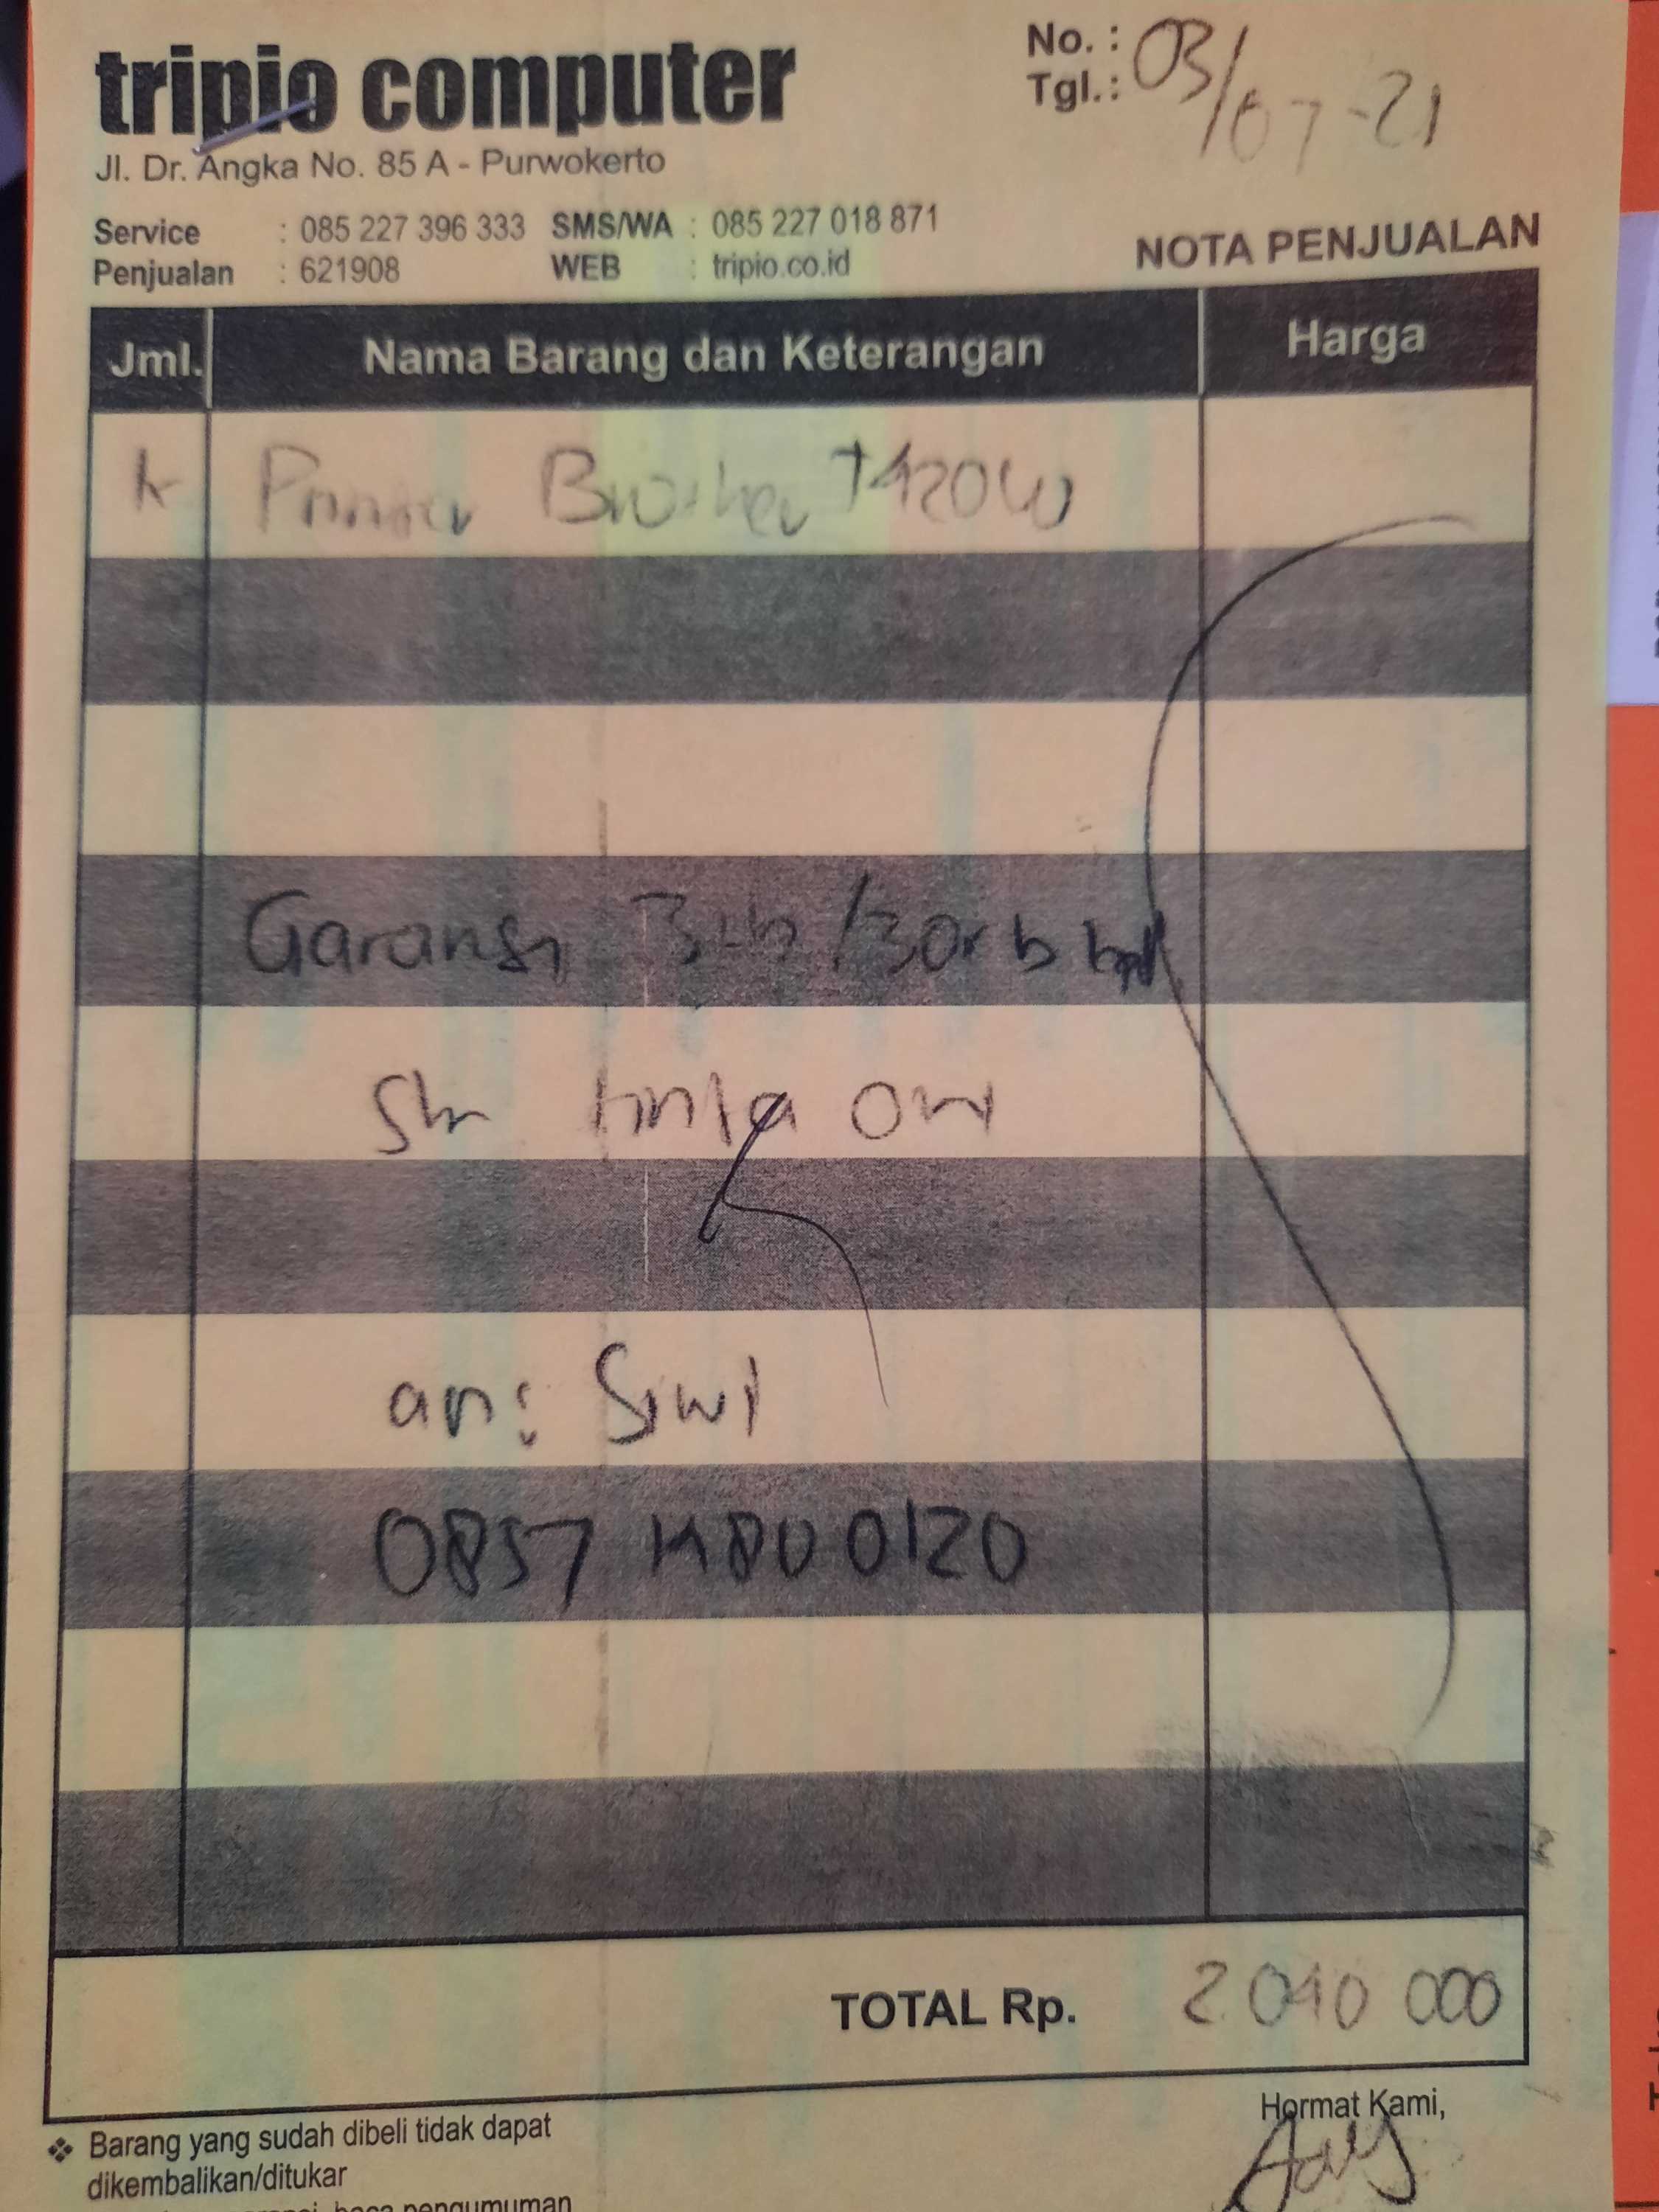 tripio computer
No. :
Tgl.: 03/07-21
Jl. Dr. Angka No. 85 A - Purwokerto
Service : 085 227 396 333 SMS/WA : 085 227 018 871
Penjualan : 621908 WEB : tripio.co.id
NOTA PENJUALAN
Jml. Nama Barang dan Keterangan Harga
Printer Brother T420W
Garansi 3 th/30rb
tinta ori
an: Siwi
0857 0120
TOTAL Rp. 2 040 000
Hormat Kami,
❖ Barang yang sudah dibeli tidak dapat
dikembalikan/ditukar
baca pengumuman